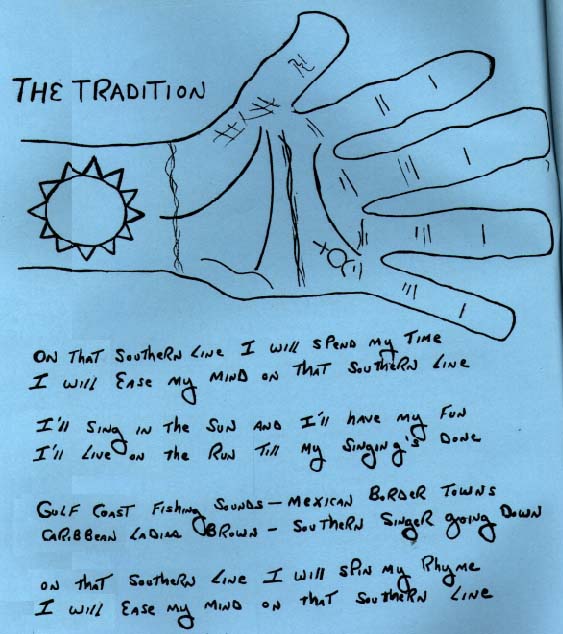 THE TRADITION
ON THAT SOUTHERN LINE I WILL SPEND MY TIME
I WILL EASE MY MIND ON THAT SOUTHERN LINE
I'll SING IN THE SUN AND I'll HAVE MY FUN
I'll LIVE ON THE RUN TILL MY SINGING'S DONE
GULF COAST FISHING SOUNDS — MEXICAN BORDER TOWNS
CARIBBEAN LADIES BROWN — SOUTHERN SINGER GOING DOWN
ON THAT SOUTHERN LINE I WILL SPIN MY RHYME
I WILL EASE MY MIND ON THAT SOUTHERN LINE